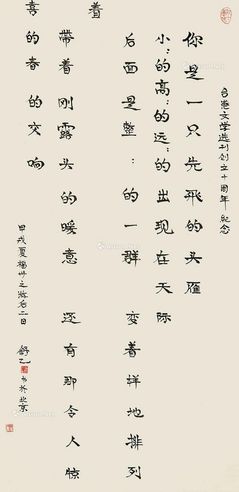 台港文学选刊创立十周年纪念
你是一只先飛的头雁
小:的高:的远:的出现在天际
后面是整:的一群 变着样地排列
着
带着刚露头的暖意 还有那令人惊
喜的春的交响
甲戌夏揚州之游后二日
舒乙书於北京